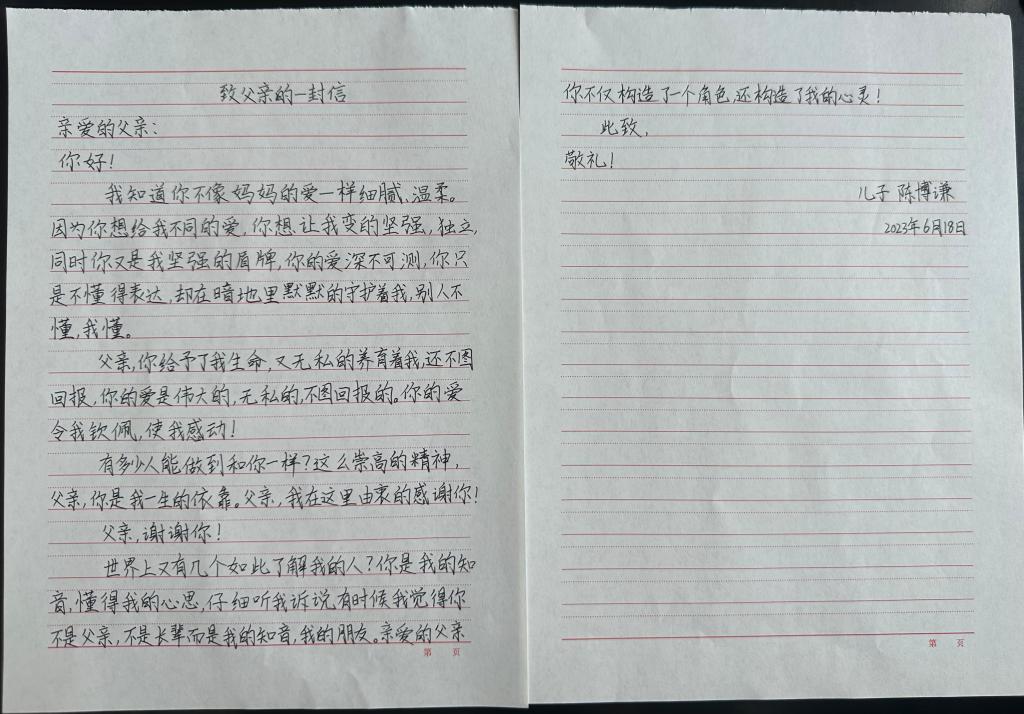 致父亲的一封信
亲爱的父亲：
你好！
我知道你不像妈妈的爱一样细腻、温柔。
因为你想给我不同的爱，你想让我变的坚强，独立，
同时你又是我坚强的盾牌，你的爱深不可测，你只
是不懂得表达，却在暗地里默默的守护着我，别人不
懂，我懂。
父亲，你给予了我生命，又无私的养育着我，还不图
回报，你的爱是伟大的，无私的，不图回报的。你的爱
令我钦佩，使我感动！
有多少人能做到和你一样？这么崇高的精神，
父亲，你是我一生的依靠。父亲，我在这里由衷的感谢你！
父亲，谢谢你！
世界上又有几个如此了解我的人？你是我的知
音，懂得我的心思，仔细听我诉说，有时候我觉得你
不是父亲，不是长辈而是我的知音，我的朋友。亲爱的父亲
第 页
你不仅构造了一个角色，还构造了我的心灵！
此致，
敬礼！
儿子 陈博谦
2023年6月18日
第 页